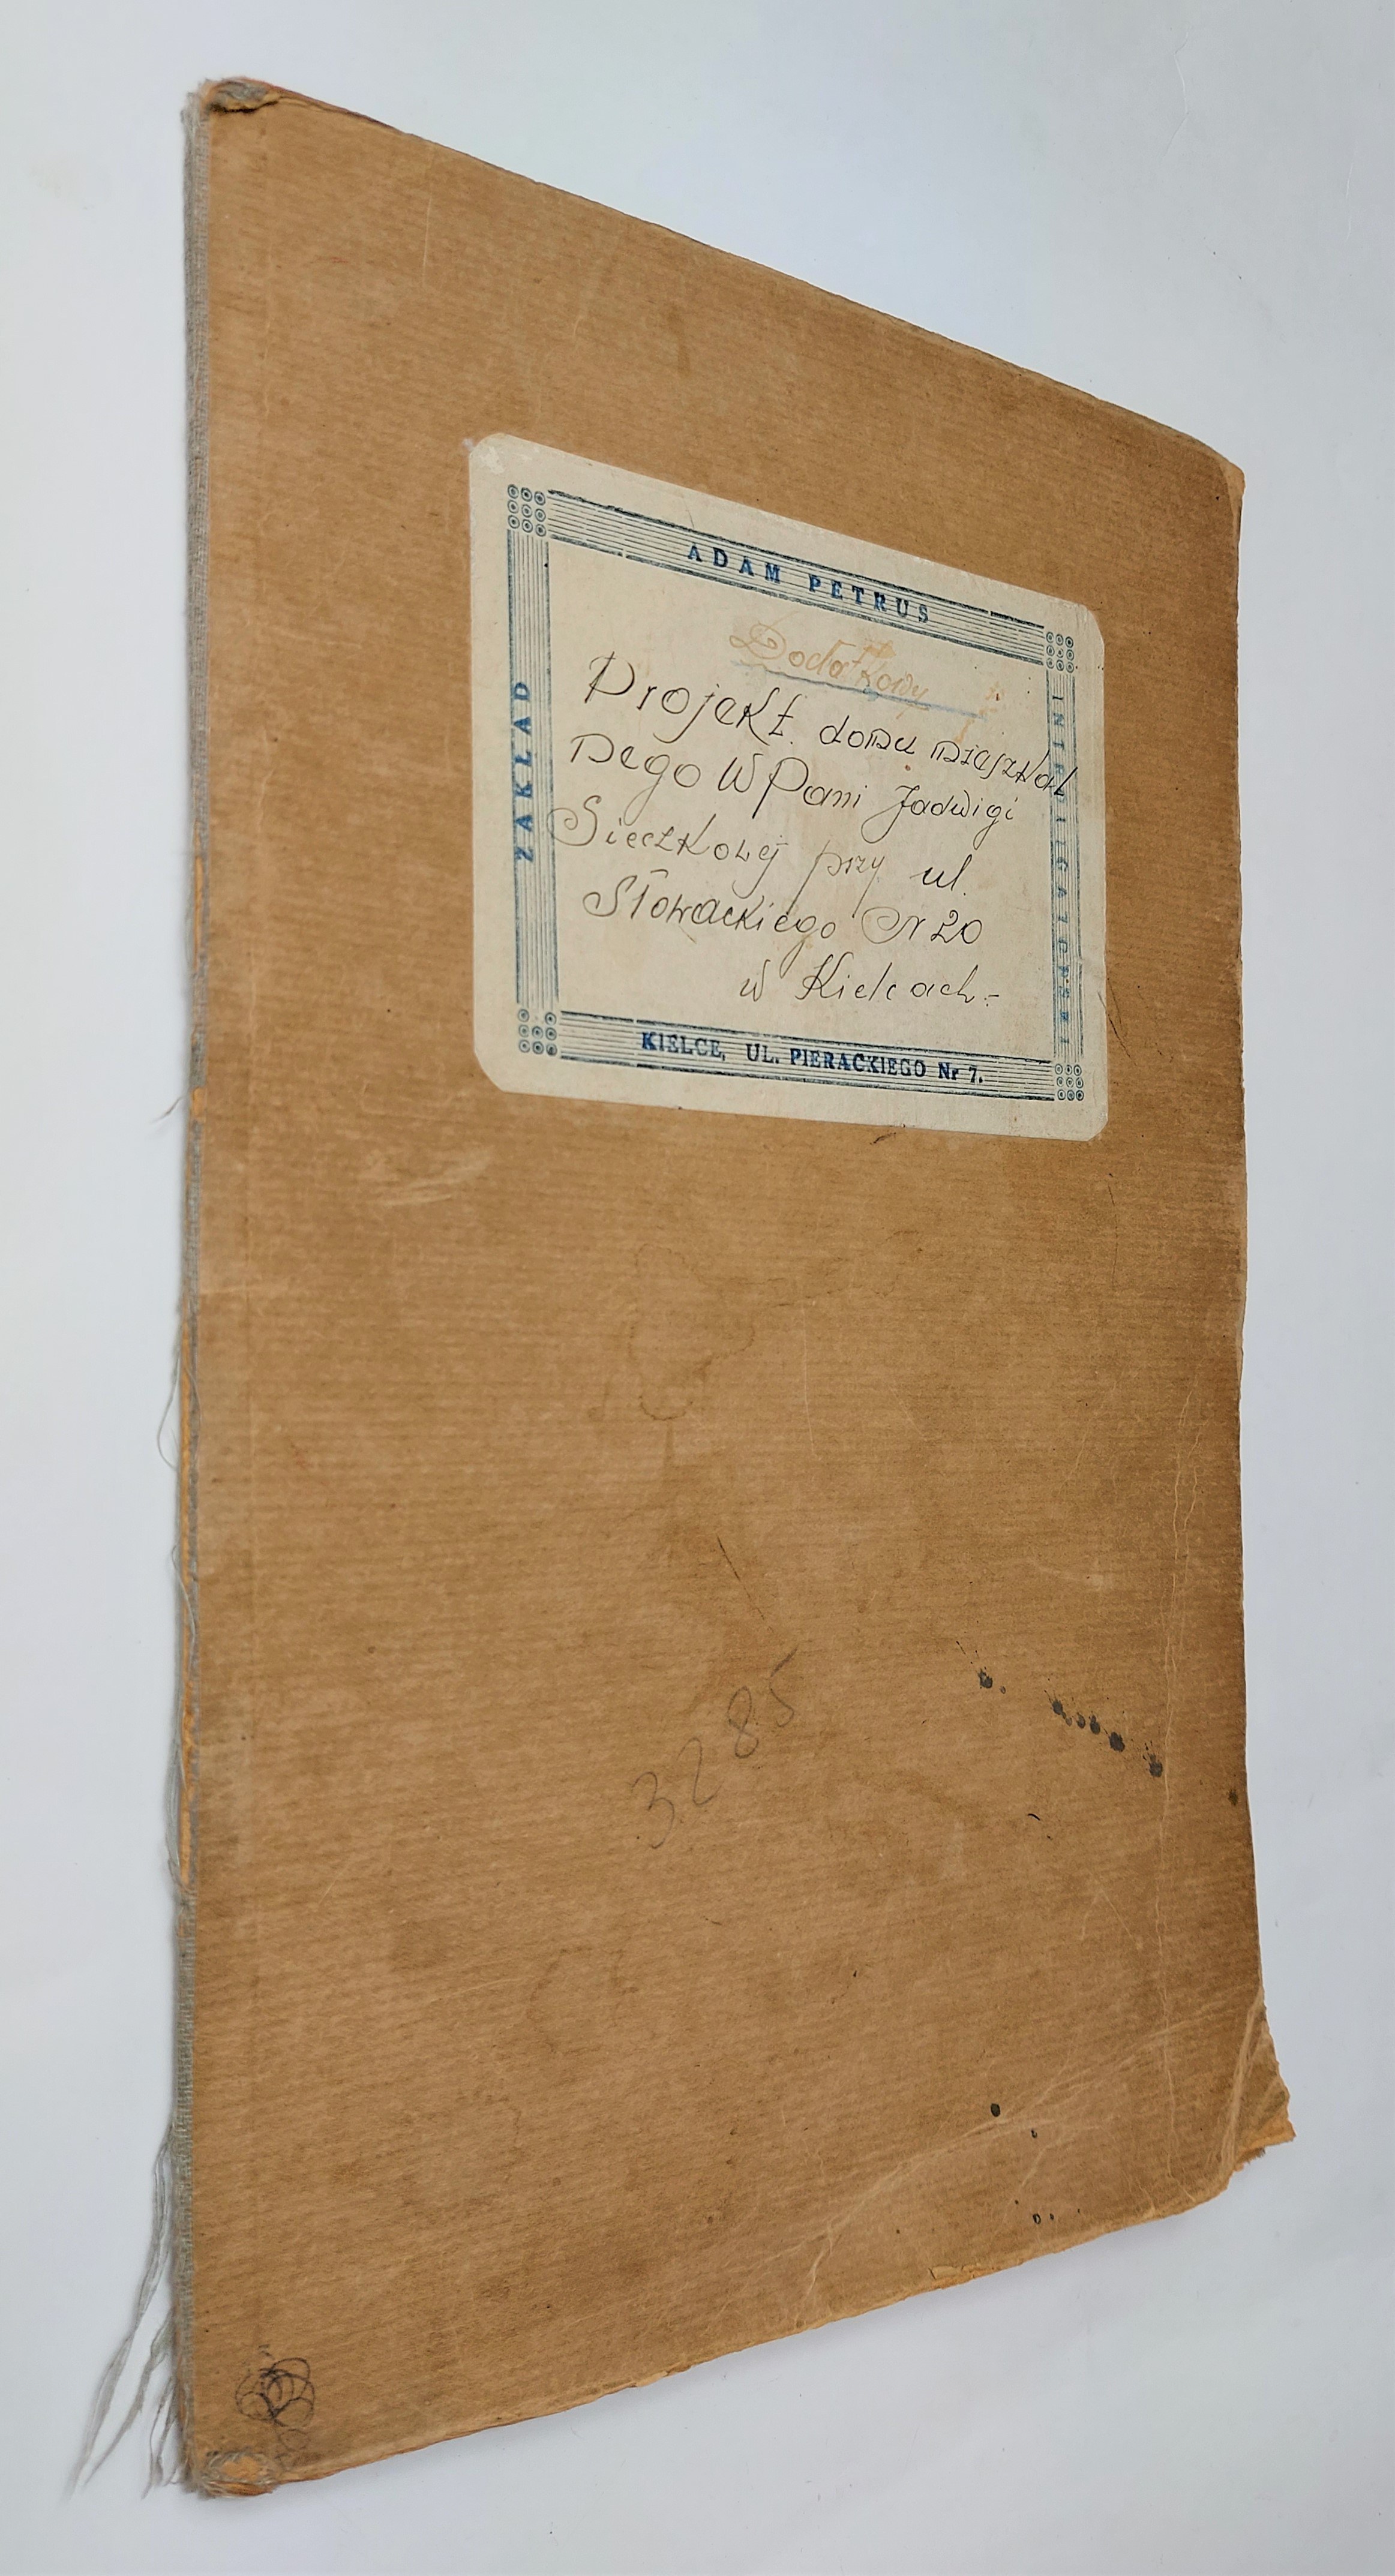 ADAM PETRUS
ZAKŁAD
INTROLIGATORSKI
Dodatkowy
Projekt domu mieszkal
nego WPani Jadwigi
Sieczkowej przy ul.
Słowackiego Nr 20
w Kielcach.-
KIELCE, UL. PIERACKIEGO Nr 7.
3285